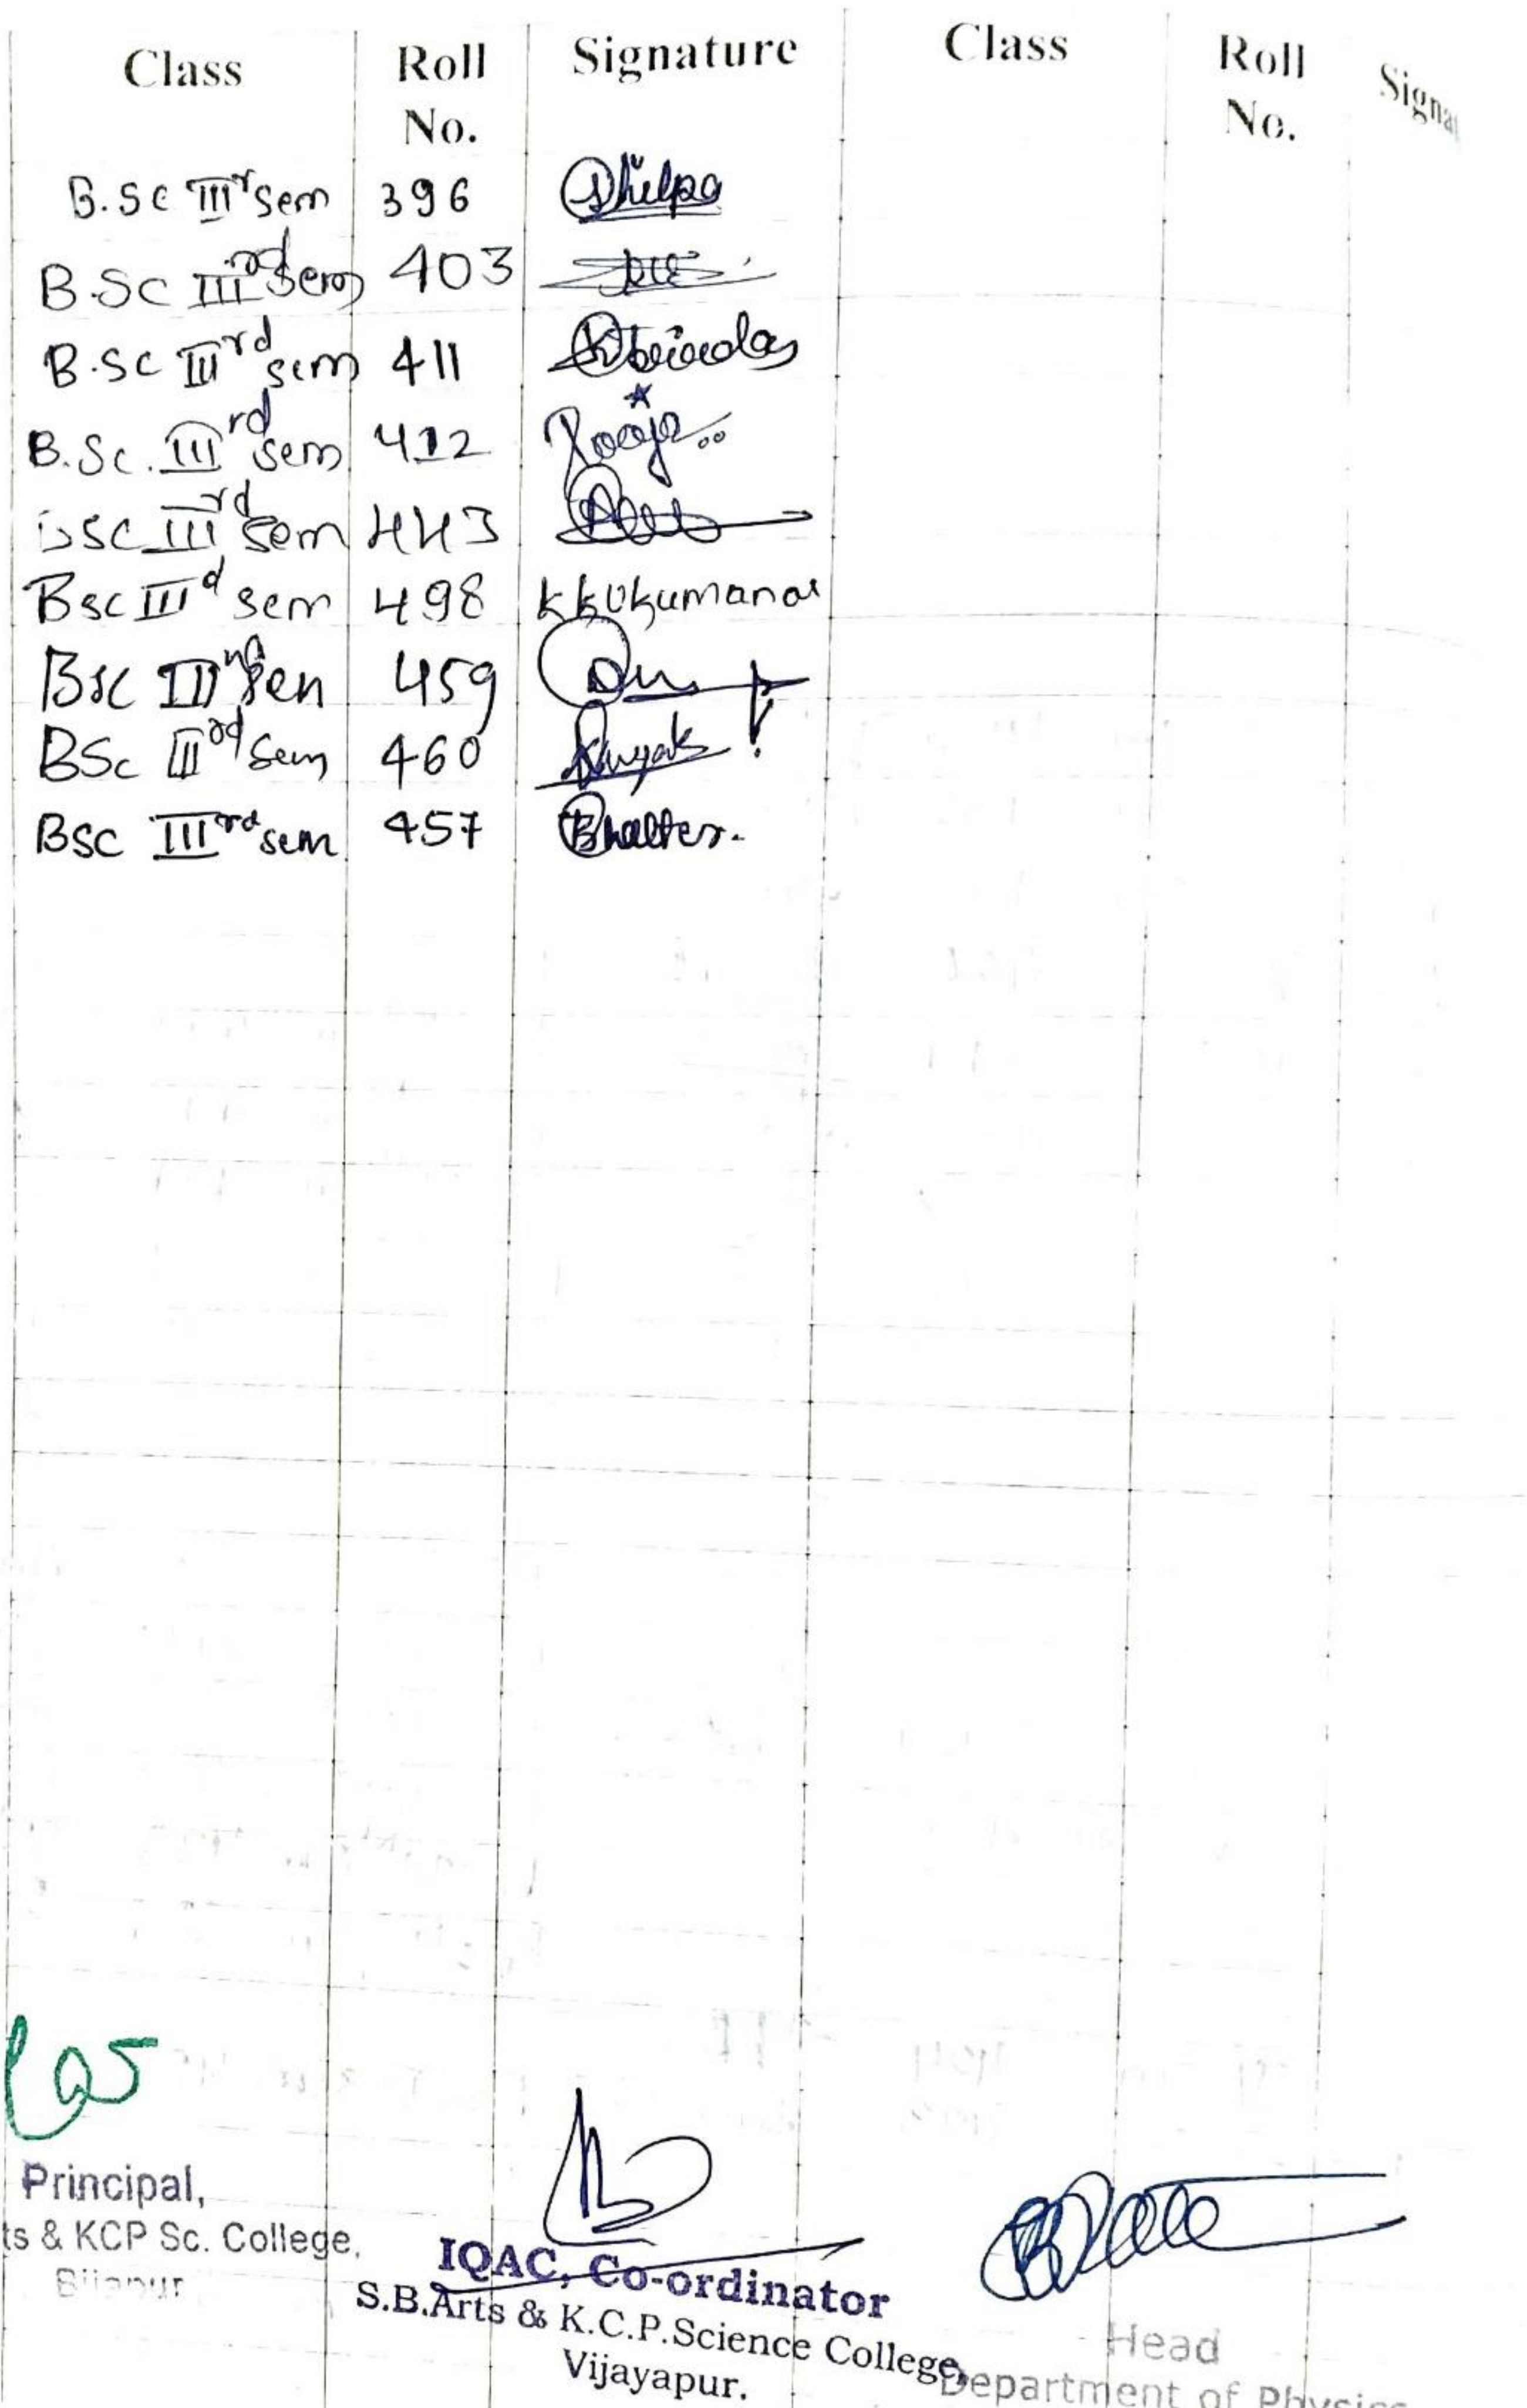 Class Roll No. Signature Class Roll No. Signa
B.Sc IIIr sem 396 Shilpa
B.Sc IIIrd sem 403
B.Sc IIIrd sem 411
B.Sc. IIIrd sem 412 Pooja
BSC IIIrd sem 443
Bsc IIId sem 498
Bsc III sen 459
BSc IIIrd Sem 460
BSC IIIrd sem 457
Principal,
ts & KCP Sc. College,
Bijapur
IQAC, Co-ordinator
S.B.Arts & K.C.P.Science College,
Vijayapur.
Head
Department of Physics